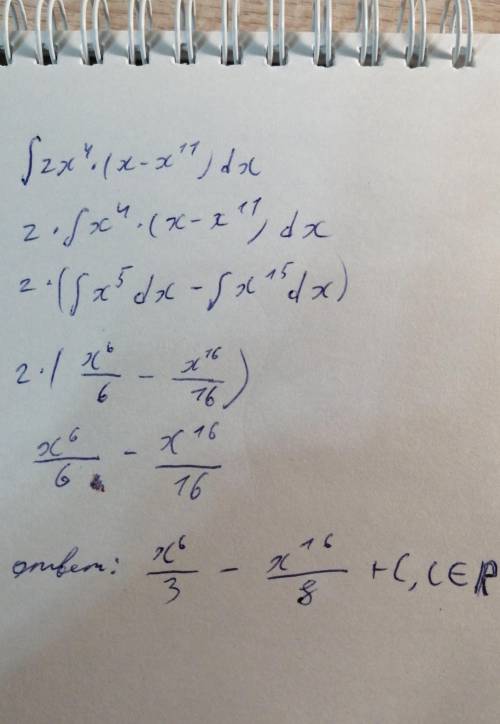 ∫2x⁴·(x-x¹¹)dx
2·∫x⁴·(x-x¹¹)dx
2·(∫x⁵dx-∫x¹⁵dx)
2·(x⁶/6 - x¹⁶/16)
x⁶/6 - x¹⁶/16
ответ: x⁶/3 - x¹⁶/8 +C, C∈ℝ